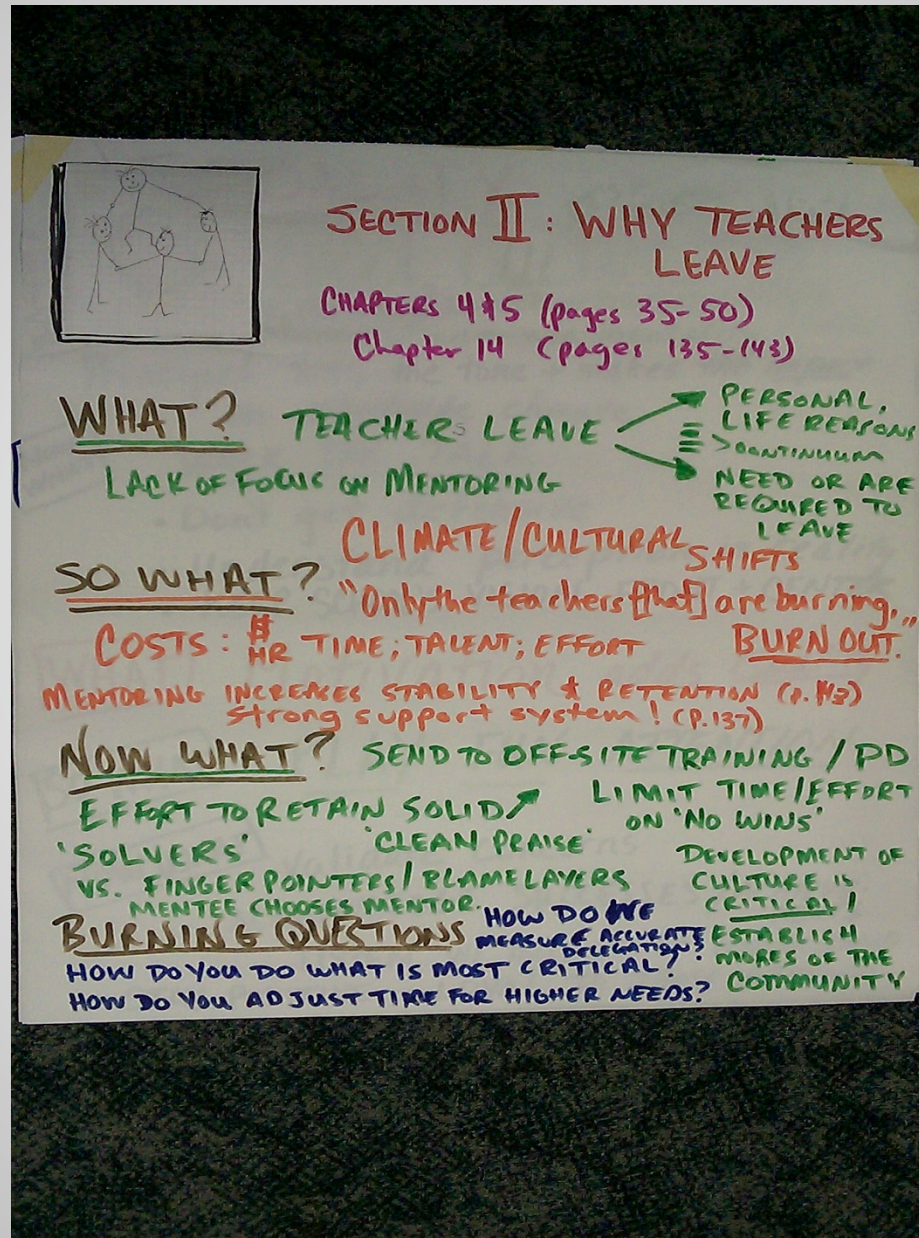 SECTION II: WHY TEACHERS
LEAVE
CHAPTERS 4 & 5 (pages 35-50)
Chapter 14 (pages 135-143)
WHAT? TEACHERS LEAVE
PERSONAL,
LIFE REASONS
>CONTINUUM
NEED OR ARE
REQUIRED TO
LEAVE
LACK OF FOCUS ON MENTORING
CLIMATE/CULTURAL
SHIFTS
SO WHAT?
"Only the teachers [that] are burning,"
BURN OUT.
COSTS: $
HR TIME; TALENT; EFFORT
MENTORING INCREASES STABILITY & RETENTION (p. 143)
strong support system! (P.137)
NOW WHAT? SEND TO OFF-SITE TRAINING / PD
EFFORT TO RETAIN SOLID
'SOLVERS'
VS. FINGER POINTERS/BLAME LAYERS
'CLEAN PRAISE'
LIMIT TIME/EFFORT
ON 'NO WINS'
MENTEE CHOOSES MENTOR.
DEVELOPMENT OF
CULTURE IS
CRITICAL!
ESTABLISH
MORES OF THE
COMMUNITY
BURNING QUESTIONS
HOW DO WE
MEASURE ACCURATE
DELEGATION?
HOW DO YOU DO WHAT IS MOST CRITICAL?
HOW DO YOU ADJUST TIME FOR HIGHER NEEDS?